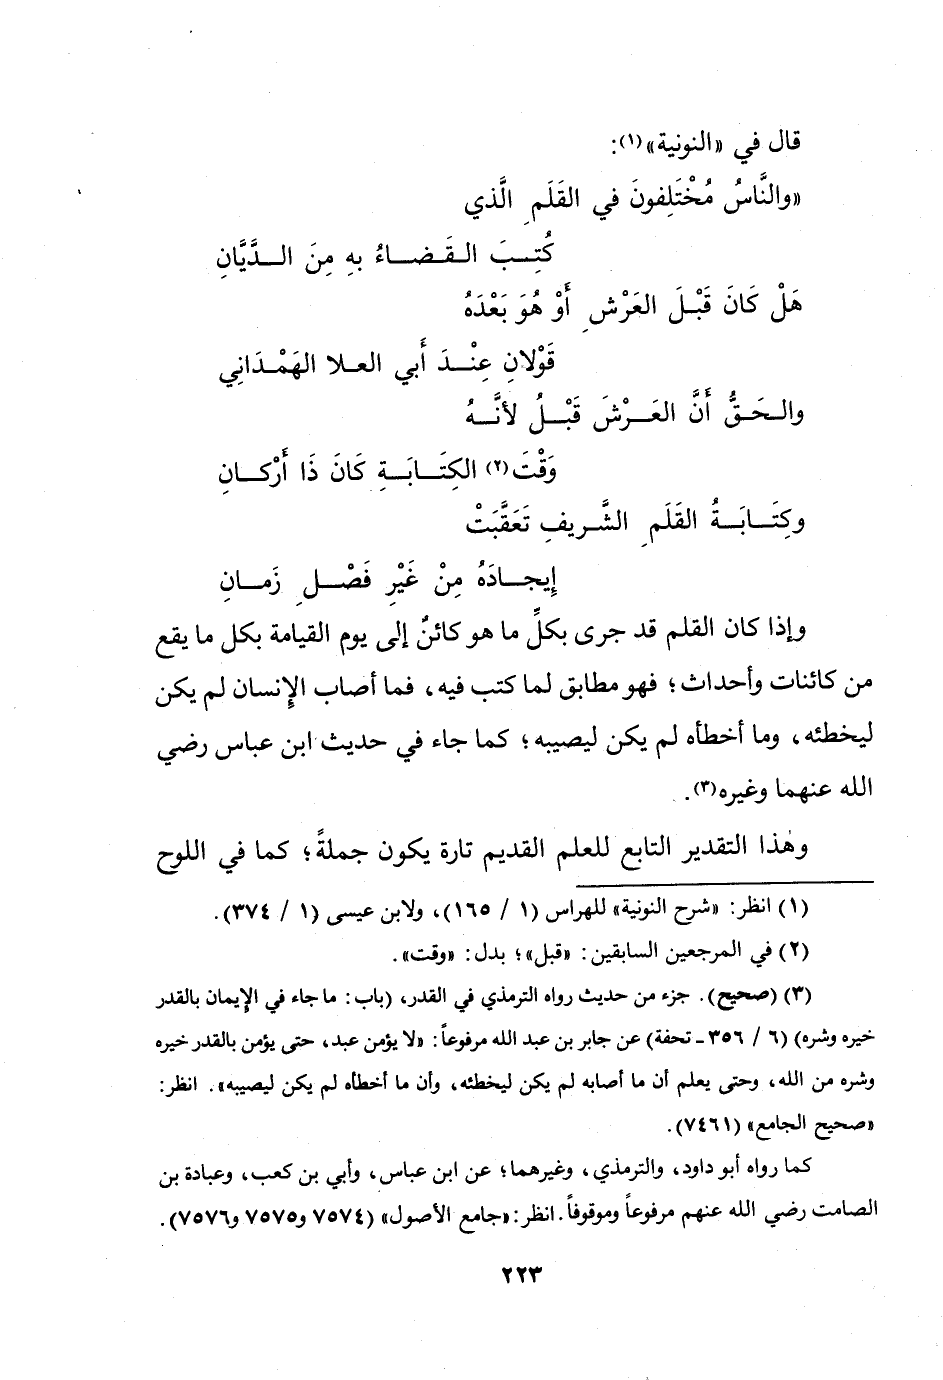 قال في «النونية»(١):
«والنَّاسُ مُخْتَلِفونَ في القَلَمِ الَّذي
كُتِبَ القَضاءُ بِهِ مِنَ الدَّيَّانِ
هَلْ كَانَ قَبْلَ العَرْشِ أَوْ هُوَ بَعْدَهُ
قَوْلانِ عِنْدَ أَبي العلا الهَمْدَاني
والحَقُّ أَنَّ العَرْشَ قَبْلُ لأنَّهُ
وَقْتَ(٢) الكِتَابَةِ كَانَ ذَا أَرْكانِ
وكِتَابَةُ القَلَمِ الشَّريفِ تَعَقَّبَتْ
إِيجادَهُ مِنْ غَيْرِ فَصْلِ زَمانِ
وإذا كان القلم قد جرى بكلِّ ما هو كائنٌ إلى يوم القيامة بكل ما يقع
من كائنات وأحداث؛ فهو مطابق لما كتب فيه، فما أصاب الإنسان لم يكن
ليخطئه، وما أخطأه لم يكن ليصيبه؛ كما جاء في حديث ابن عباس رضي
الله عنهما وغيره(٣).
وهٰذا التقدير التابع للعلم القديم تارة يكون جملةً؛ كما في اللوح
(١) انظر: «شرح النونية» للهراس (١ / ١٦٥)، ولابن عيسى (١ / ٣٧٤).
(٢) في المرجعين السابقين: «قبل»؛ بدل: «وقت».
(٣) (صحيح). جزء من حديث رواه الترمذي في القدر، (باب: ما جاء في الإيمان بالقدر
خيره وشره) (٦ / ٣٥٦ ـ تحفة) عن جابر بن عبد الله مرفوعاً: «لا يؤمن عبد، حتى يؤمن بالقدر خيره
وشره من الله، وحتى يعلم أن ما أصابه لم يكن ليخطئه، وأن ما أخطأه لم يكن ليصيبه». انظر:
«صحيح الجامع» (٧٤٦١).
كما رواه أبو داود، والترمذي، وغيرهما؛ عن ابن عباس، وأبي بن كعب، وعبادة بن
الصامت رضي الله عنهم مرفوعاً وموقوفاً. انظر: «جامع الأصول» (٧٥٧٤ و٧٥٧٥ و٧٥٧٦).
٢٢٣